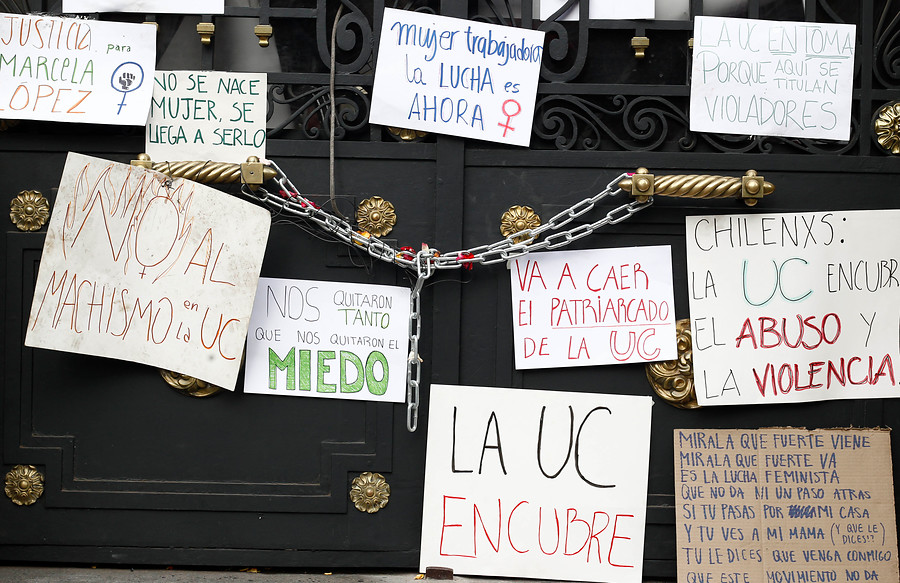 JUSTICIA para
MARCELA
LOPEZ
NO SE NACE
MUJER, SE
LLEGA A SERLO
mujer trabajadora
la LUCHA es
AHORA
LA UC EN TOMA
PORQUE AQUÍ SE
TITULAN
VIOLADORES
NO AL
MACHISMO en
la UC
NOS QUITARON
TANTO
QUE NOS QUITARON EL
MIEDO
VA A CAER
El PATRIARCADO
DE LA UC
CHILENXS:
LA UC ENCUBRE
EL ABUSO Y
LA VIOLENCIA
LA UC
ENCUBRE
MIRALA QUE FUERTE VIENE
MIRALA QUE FUERTE VA
ES LA LUCHA FEMINISTA
QUE NO DA NI UN PASO ATRAS
SI TU PASAS POR MI CASA
Y TU VES A MI MAMA (Y QUE LE
DICES!?)
TU LE DICES QUE VENGA CONMIGO
QUE ESTE MOVIMIENTO NO DA